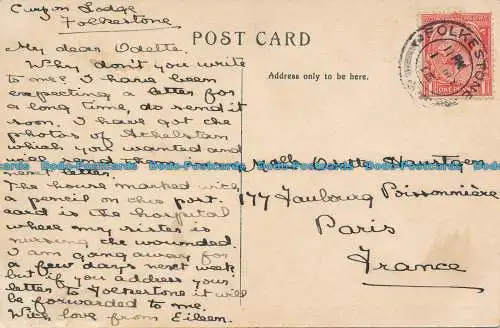 Curzon Lodge
Folkestone
My dear Odette.
Why don't you write
to me? I have been
expecting a letter for
a long time, do send it
soon. I have got the
photos of Athelstan
which you wanted and
will send them
next letter.
The house marked with
a pencil on this post
card is the hospital
where my sister is
nursing the wounded.
I am going away for
a few days next week,
but if you address your
letter to Folkestone it will
be forwarded to me.
With love from Eileen.
POST CARD
Address only to be here.
FOLKESTONE
ONE PENNY
Mdlle Odette
177 Faubourg Poissonnière
Paris
France
Dodo-Postcards Dodo-Postcards Dodo-Postcards Dodo-Postcards Dodo-Postcards